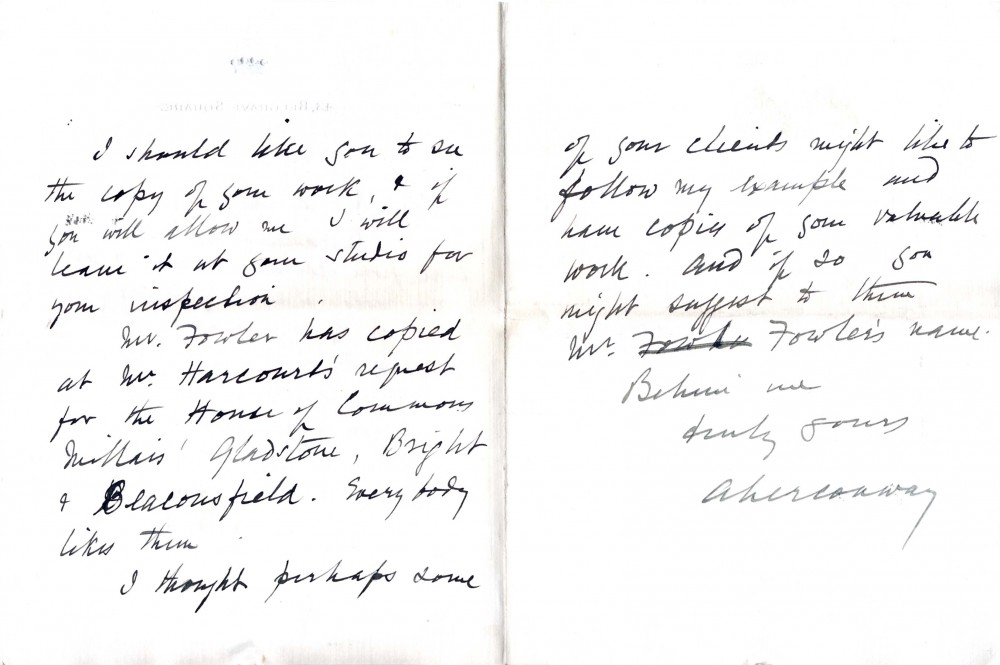 I should like you to see
the copy of your work, & if
you will allow me I will
leave it at your studio for
your inspection.
Mr. Fowler has copied
at Mr. Harcourt's request
for the House of Commons
Millais' Gladstone, Bright
& Beaconsfield. Everybody
likes them
I thought perhaps some
of your clients might like to
follow my example and
have copies of your valuable
work. And if so you
might suggest to them
Mr. Fowler's name.
Believe me
truly yours
Aberconway